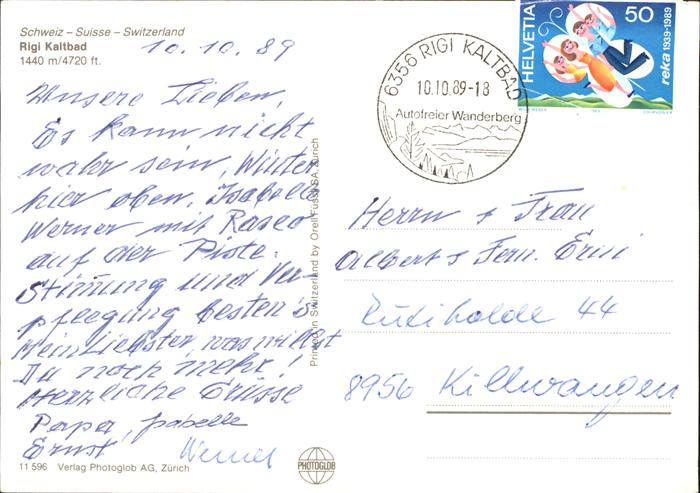 Schweiz – Suisse – Switzerland
Rigi Kaltbad
1440 m/4720 ft.
10.10.89
Unsere Lieben,
Es kann nicht
wahr sein, Winter
hier oben. Isabelle
Werner mit Rasco
auf der Piste.
Stimmung und Ver-
pflegung bestens
Mein Liebster was willst
Du noch mehr!
Herzliche Grüsse
Papa, Isabelle
Ernst Werner
11 596 Verlag Photoglob AG, Zürich
PHOTOGLOB
Printed in Switzerland by Orell Füssli SA, Zürich
6356 RIGI KALTBAD
10.10.89-18
Autofreier Wanderberg
HELVETIA
50
reka 1939-1989
1989
COURVOISIER
Herrn & Frau
Albert & Fern. Erni
Rütihalde 44
8956 Killwangen